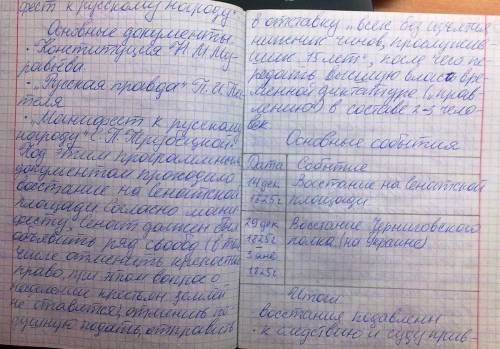 фест к русскому народу"
Основные документы
• Конституция Н.М. Му-
равьева.
• „Русская правда" П.И. Пе-
стеля
• „Манифест к русскому
народу" С.П. Трубецкой
Под этим программным
документом проходило
восстание на Сенатской
площади. Согласно мани-
фесту, Сенат должен был
объявить ряд свобод (в том
числе отменить крепостн.
право, при этом вопрос о
наделении крестьян землей
не ставится), отменить по-
душную подать, отправить
в отставку „всех без изъятия
нижних чинов, прослужив
ших 15 лет", после чего пе-
редать высшую власть вре-
менной диктатуре (правлению) в составе 2-3 чело-
век
Основные события
Дата Событие
14 дек Восстание на Сенатской
1825г. площади
29 дек Восстание Черниговского
1825г. полка (на Украине)
– 3 янв
1825г.
Итог:
восстания подавлены
• к следствию и суду прив-